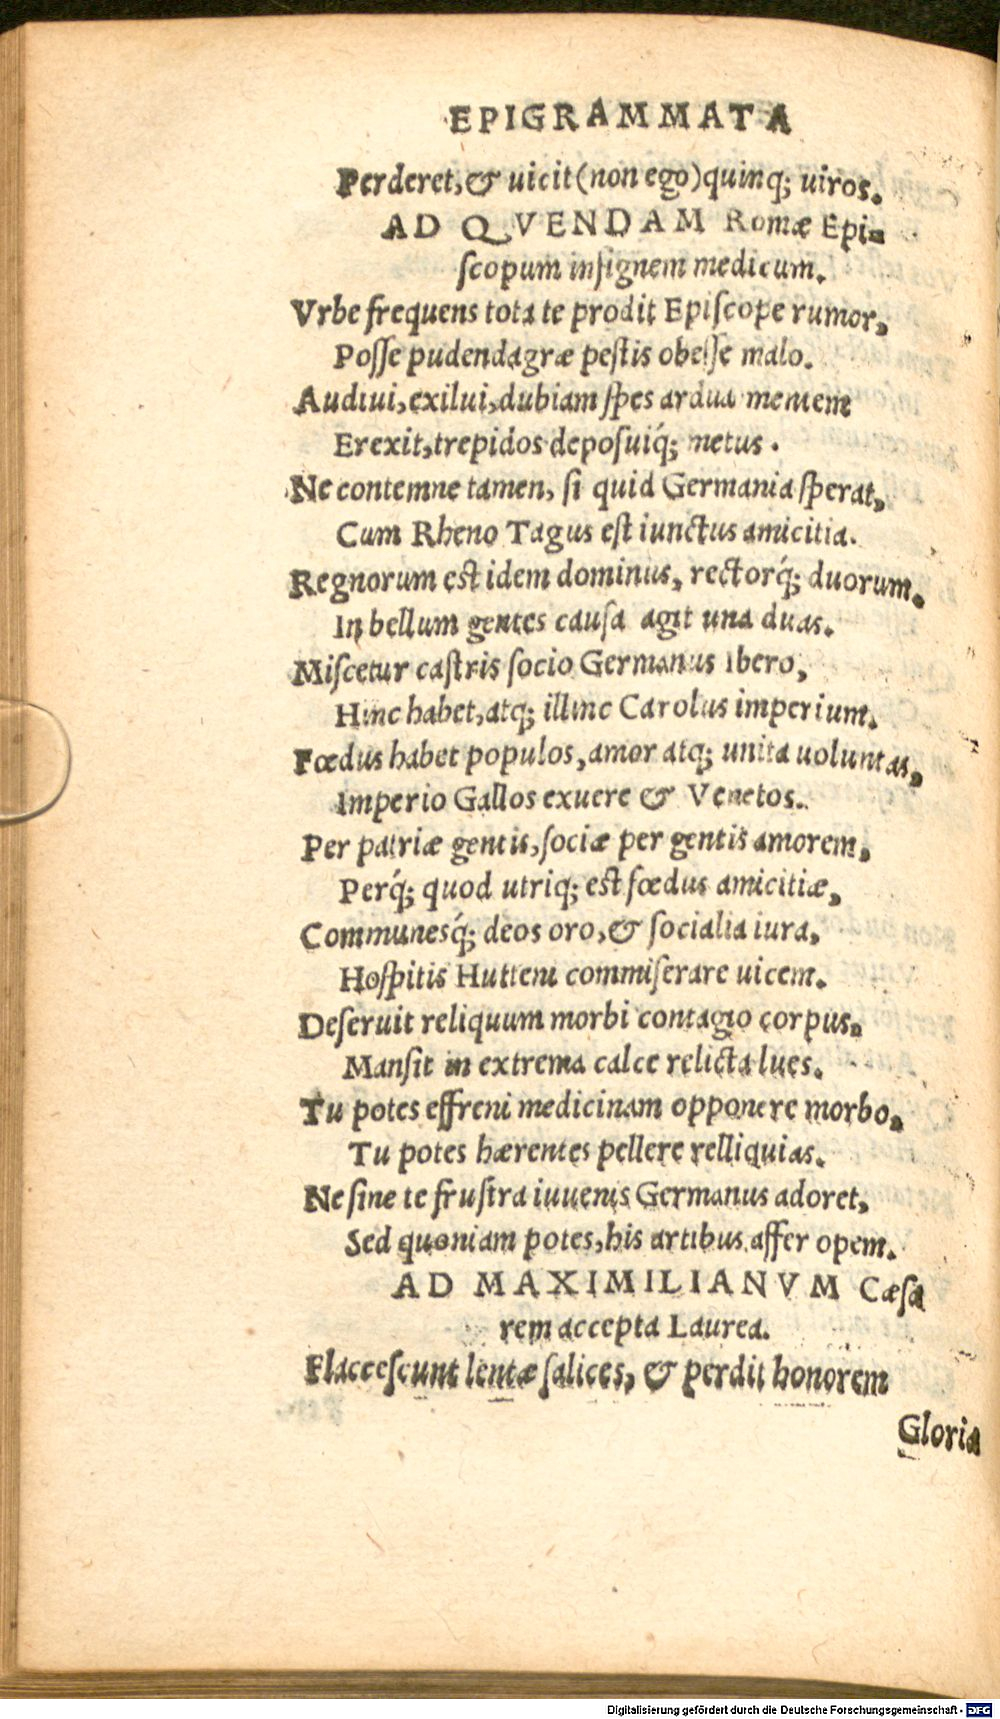 EPIGRAMMATA
Perderet, & uicit (non ego) quinq; uiros.
AD QVENDAM Romæ Epi-
scopum insignem medicum.
Vrbe frequens tota te prodit Episcope rumor,
Posse pudendagræ pestis obesse malo.
Audiui, exilui, dubiam spes ardua mentem
Erexit, trepidos deposuiq́; metus.
Ne contemne tamen, si quid Germania sperat,
Cum Rheno Tagus est iunctus amicitia.
Regnorum est idem dominus, rectorq́; duorum.
In bellum gentes causa agit una duas.
Miscetur castris socio Germanus Ibero,
Hinc habet, atq; illinc Carolus imperium.
Fœdus habet populos, amor atq; unita uoluntas,
Imperio Gallos exuere & Venetos.
Per patriæ gentis, sociæ per gentis amorem,
Perq́; quod utriq; est fœdus amicitiæ,
Communesq́; deos oro, & socialia iura,
Hospitis Hutteni commiserare uicem.
Deseruit reliquum morbi contagio corpus.
Mansit in extrema calce relicta lues.
Tu potes effreni medicinam opponere morbo,
Tu potes hærentes pellere relliquias.
Ne sine te frustra iuuenis Germanus adoret,
Sed quoniam potes, his artibus affer opem.
AD MAXIMILIANVM Cæsa
rem accepta Laurea.
Flaccescunt lentæ salices, & perdit honorem
Gloria
Digitalisierung gefördert durch die Deutsche Forschungsgemeinschaft - DFG